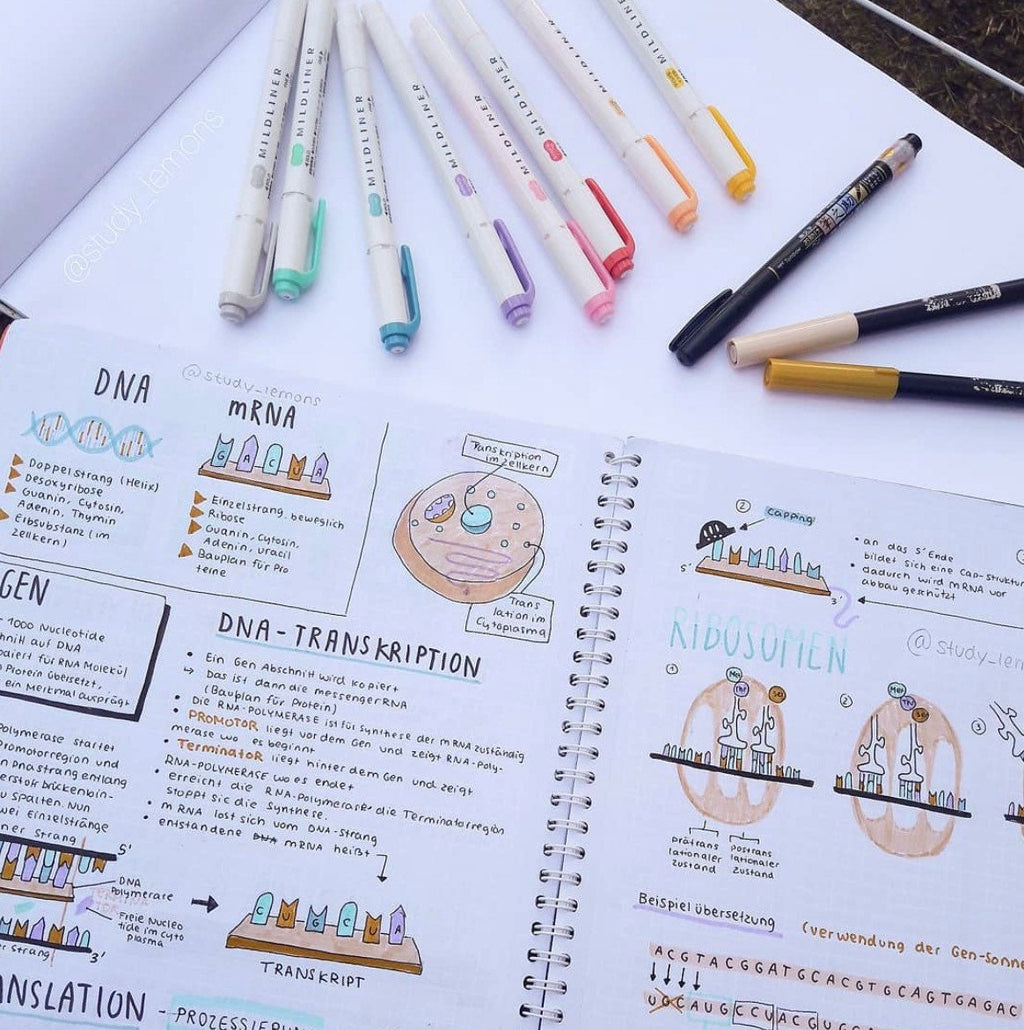 MILDLINER
MILDLINER
MILDLINER
MILDLINER
MILDLINER
MILDLINER
MILDLINER
MILDLINER
@study_lemons
@study_lemons
DNA
Doppelstrang (Helix)
Desoxyribose
Guanin, Cytosin,
Adenin, Thymin
Erbsubstanz (im
zellkern)
mRNA
G A C U A
Einzelstrang, beweglich
Ribose
Guanin, Cytosin,
Adenin, uracil
Bauplan für Pro
teine
Transkription
im zellkern
Trans
lation im
Cytoplasma
GEN
1000 Nucleotide
auf DNA
für RNA Molekül
Protein übersetzt,
ein Merkmal ausprägt
DNA-TRANSKRIPTION
• Ein Gen Abschnitt wird kopiert
↳ Das ist dann die messenger RNA
(Bauplan für Protein)
• Die RNA-POLYMERASE ist für Synthese der mRNA zuständig
• PROMOTOR liegt vor dem Gen und zeigt RNA-Poly-
merase wo es beginnt
• Terminator liegt hinter dem Gen und zeigt
RNA-POLYMERASE wo es endet
• erreicht die RNA-Polymerase die Terminatorregion
stoppt sie die Synthese.
• mRNA löst sich vom DNA-strang
entstandene mRNA heißt
Polymerase startet
Promotorregion und
DNAstrang entlang
erstoff brückenbin-
zu spalten. Nun
zwei Einzelstränge
Strang
5'
DNA
Polymerase
Freie Nucleo
tide im cyto
plasma
3'
C U G C U A
TRANSKRIPT
ANSLATION - PROZESSIERUN
② capping
5'
3'
• an das 5' Ende
bildet sich eine Cap-Struktur
• dadurch wird mRNA vor
abbau geschützt
RIBOSOMEN
@study_lem
①
②
③
Prätrans
lationaler
zustand
Postrans
lationaler
zustand
Beispiel übersetzung
(verwendung der Gen-Sonne
ACGTACGGATGCACGTGCAGTGAGAC
UGCAUGCCUACGU